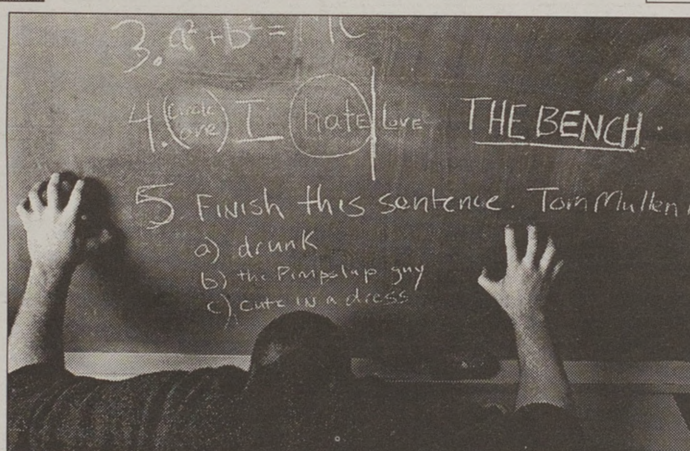 3. a² + b² = MC
4. (circle one) I hate | LOVE THE BENCH.
5 FINISH this sentence. Tom Mullen
a) drunk
b) the Pimpslap guy
c) cute IN a dress